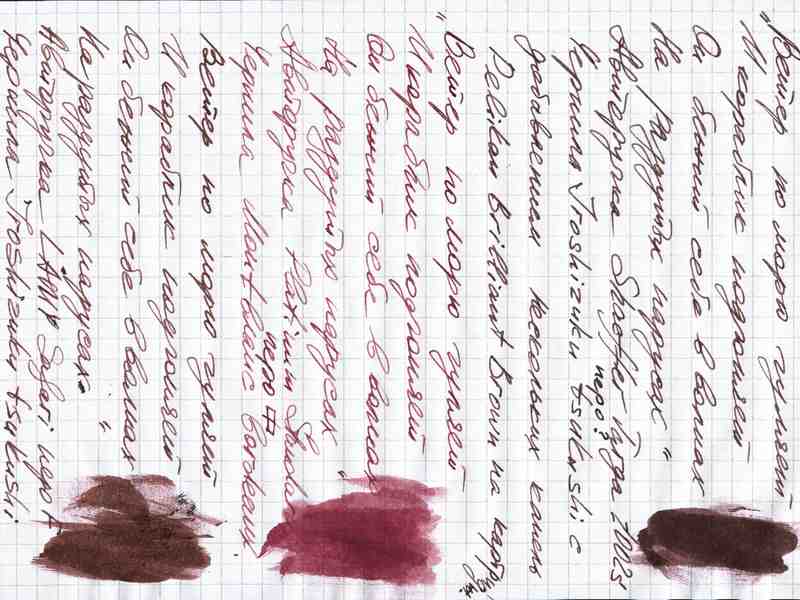 "Ветер по морю гуляет
И кораблик подгоняет
Он бежит себе в волнах
На раздутых парусах"
Авторучка Sheaffer Targa 1002s
перо?
Чернила Iroshizuku tsukushi с
добавлением нескольких капель
Pelikan Brilliant Brown на картридж.
"Ветер по морю гуляет
И кораблик подгоняет
Он бежит себе в волнах
На раздутых парусах"
Авторучка Platinum
перо F
Чернила Montblanc Bordeaux
Ветер по морю гуляет
И кораблик подгоняет
Он бежит себе в волнах
На раздутых парусах."
Авторучка LAMY Safari перо F
Чернила Iroshizuku tsukushi